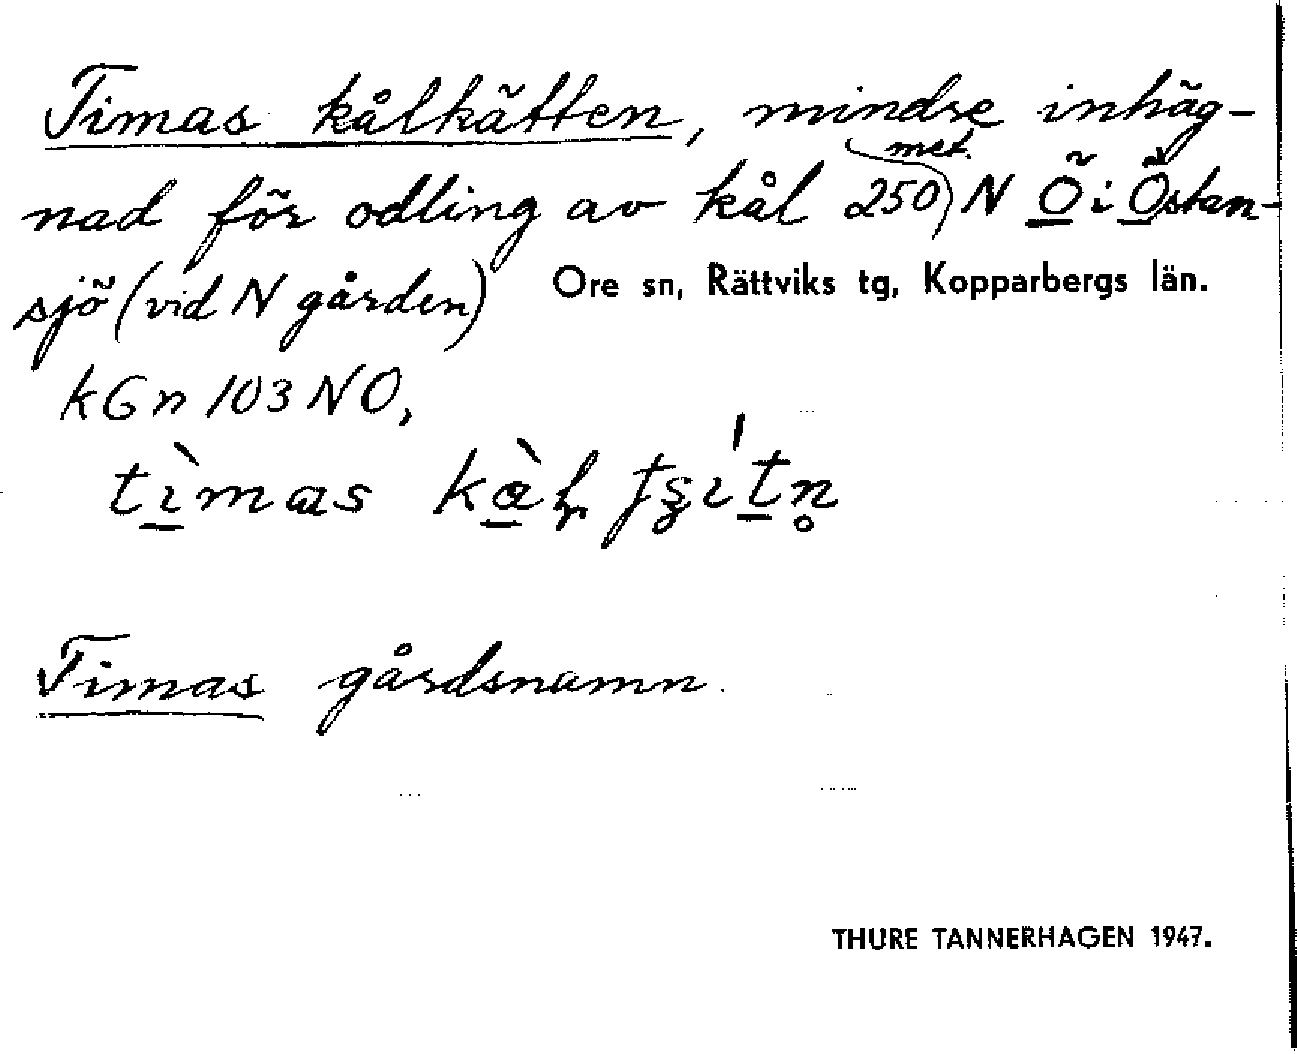 Timas kålkätten, mindre inhäg-
nad för odling av kål 250 met. N Ö i Östan-
sjö (vid N gården) Ore sn, Rättviks tg, Kopparbergs län.
kGn 103 NO,
tìmas
Timas gårdsnamn.
THURE TANNERHAGEN 1947.